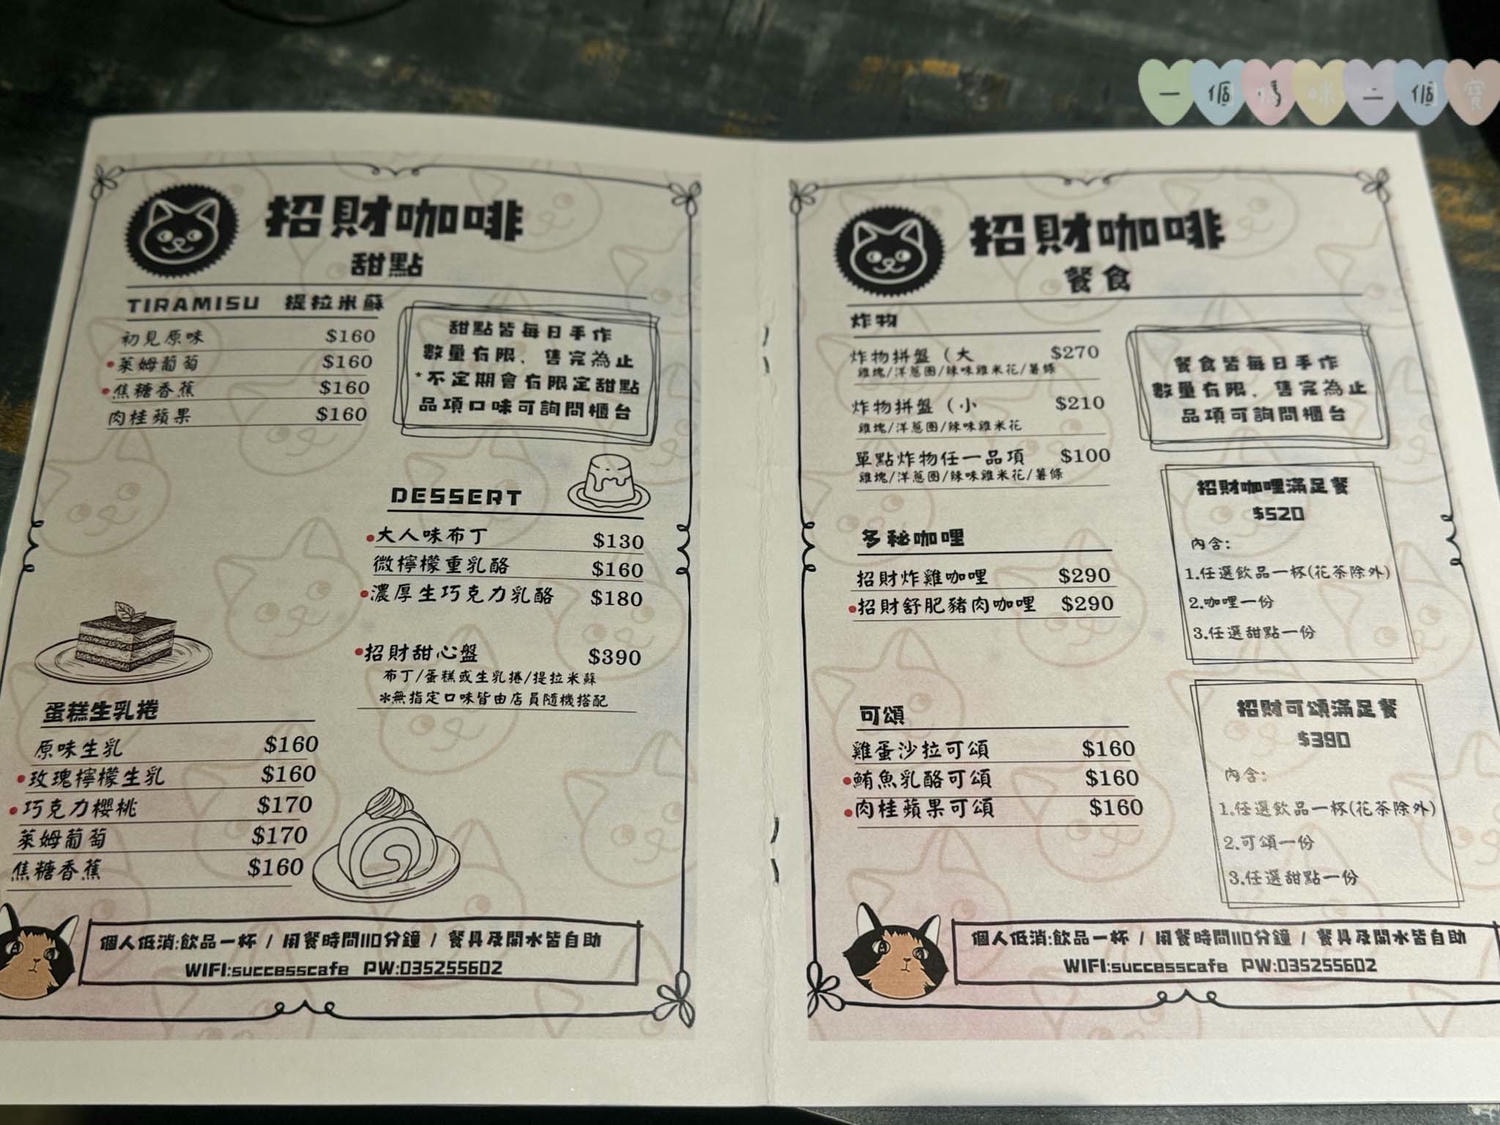 一個媽咪二個寶
招財咖啡
甜點
TIRAMISU 提拉米蘇
初見原味 $160
萊姆葡萄 $160
焦糖香蕉 $160
肉桂蘋果 $160
甜點皆每日手作
數量有限，售完為止
*不定期會有限定甜點
品項口味可詢問櫃台
DESSERT
大人味布丁 $130
微檸檬重乳酪 $160
濃厚生巧克力乳酪 $180
招財甜心盤 $390
布丁/蛋糕或生乳捲/提拉米蘇
*無指定口味皆由店員隨機搭配
蛋糕生乳捲
原味生乳 $160
玫瑰檸檬生乳 $160
巧克力櫻桃 $170
萊姆葡萄 $170
焦糖香蕉 $160
個人低消:飲品一杯 / 用餐時間110分鐘 / 餐具及開水皆自助
WIFI:successcafe PW:035255602
招財咖啡
餐食
炸物
炸物拼盤（大 $270
雞塊/洋蔥圈/辣味雞米花/薯條
炸物拼盤（小 $210
雞塊/洋蔥圈/辣味雞米花
單點炸物任一品項 $100
雞塊/洋蔥圈/辣味雞米花/薯條
餐食皆每日手作
數量有限，售完為止
品項可詢問櫃台
多秘咖哩
招財炸雞咖哩 $290
招財舒肥豬肉咖哩 $290
招財咖哩滿足餐
$520
內含:
1.任選飲品一杯(花茶除外)
2.咖哩一份
3.任選甜點一份
可頌
雞蛋沙拉可頌 $160
鮪魚乳酪可頌 $160
肉桂蘋果可頌 $160
招財可頌滿足餐
$390
內含:
1.任選飲品一杯(花茶除外)
2.可頌一份
3.任選甜點一份
個人低消:飲品一杯 / 用餐時間110分鐘 / 餐具及開水皆自助
WIFI:successcafe PW:035255602